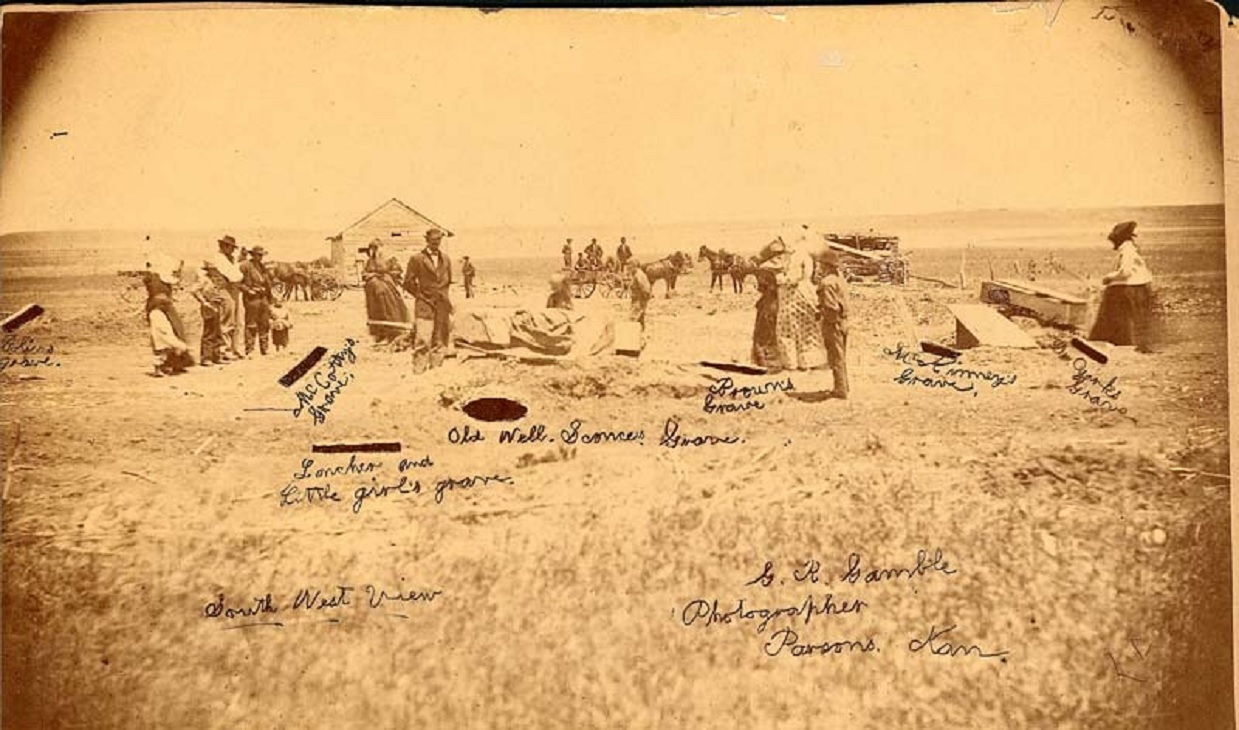 grave.
McCotty's
Grave.
Old Well. Sconces Grave.
Loncher and
Little girl's grave.
Brown's
Grave
McKinney's
Grave.
York's
Grave
South West View
G. R. Gamble
Photographer
Parsons. Kan